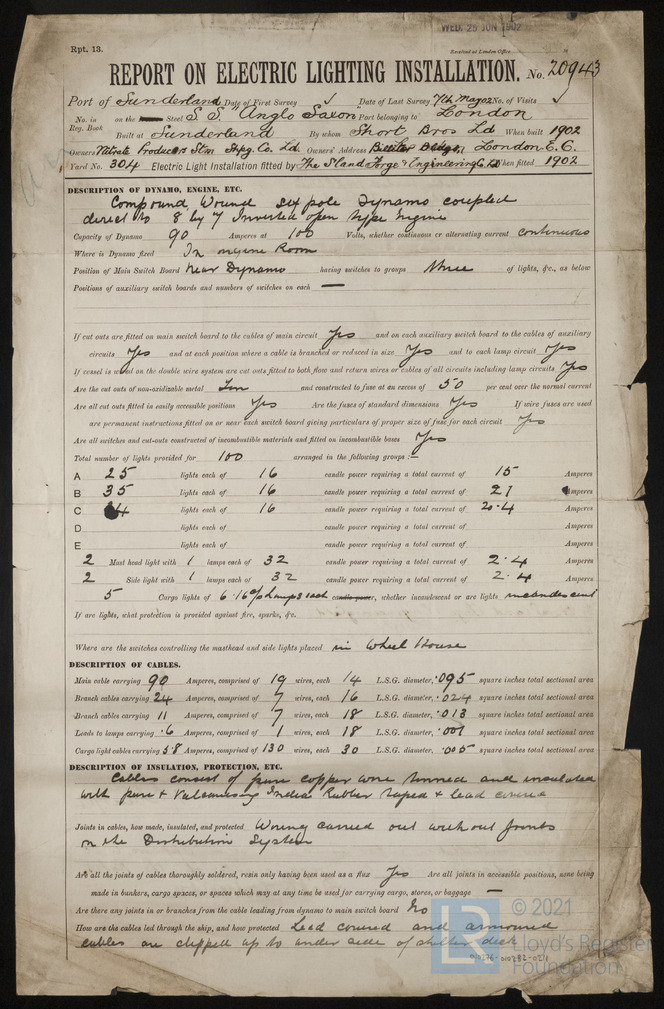 WED. 25 JUN 1902
Rpt. 13.
Received at London Office 18
REPORT ON ELECTRIC LIGHTING INSTALLATION. No. 20943
Port of Sunderland Date of First Survey ✓ Date of Last Survey 7th May 02 No. of Visits ✓
No. in on the Steel S.S. "Anglo Saxon" Port belonging to London
Reg. Book Built at Sunderland By whom Short Bros Ld When built 1902
Owners Nitrate Producers Stm Shpg. Co. Ld. Owners' Address Billiter Bldgs, London. E.C.
Yard No. 304 Electric Light Installation fitted by The Sland Forge & Engineering Co Ld When fitted 1902
DESCRIPTION OF DYNAMO, ENGINE, ETC.
Compound Wound six pole Dynamo coupled
direct to 8 by 7 Inverted open type Engine
Capacity of Dynamo 90 Amperes at 100 Volts, whether continuous or alternating current continuous
Where is Dynamo fixed In engine Room
Position of Main Switch Board near Dynamo having switches to groups three of lights, &c., as below
Positions of auxiliary switch boards and numbers of switches on each —
If cut outs are fitted on main switch board to the cables of main circuit Yes and on each auxiliary switch board to the cables of auxiliary
circuits Yes and at each position where a cable is branched or reduced in size Yes and to each lamp circuit Yes
If vessel is wired on the double wire system are cut outs fitted to both flow and return wires or cables of all circuits including lamp circuits Yes
Are the cut outs of non-oxidizable metal Tin and constructed to fuse at an excess of 50 per cent over the normal current
Are all cut outs fitted in easily accessible positions Yes Are the fuses of standard dimensions Yes If wire fuses are used
are permanent instructions fitted on or near each switch board giving particulars of proper size of fuse for each circuit Yes
Are all switches and cut-outs constructed of incombustible materials and fitted on incombustible bases Yes
Total number of lights provided for 100 arranged in the following groups :—
A 25 lights each of 16 candle power requiring a total current of 15 Amperes
B 35 lights each of 16 candle power requiring a total current of 21 Amperes
C 34 lights each of 16 candle power requiring a total current of 20.4 Amperes
D lights each of candle power requiring a total current of Amperes
E lights each of candle power requiring a total current of Amperes
2 Mast head light with 1 lamps each of 32 candle power requiring a total current of 2.4 Amperes
2 Side light with 1 lamps each of 32 candle power requiring a total current of 2.4 Amperes
5 Cargo lights of 6. 16 c/p Lamps each candle power, whether incandescent or arc lights incandescent
If arc lights, what protection is provided against fire, sparks, &c.
Where are the switches controlling the masthead and side lights placed in Wheel House
DESCRIPTION OF CABLES.
Main cable carrying 90 Amperes, comprised of 19 wires, each 14 L.S.G. diameter, .095 square inches total sectional area
Branch cables carrying 24 Amperes, comprised of 7 wires, each 16 L.S.G. diameter, .024 square inches total sectional area
Branch cables carrying 11 Amperes, comprised of 7 wires, each 18 L.S.G. diameter, .013 square inches total sectional area
Leads to lamps carrying .6 Amperes, comprised of 1 wires, each 18 L.S.G. diameter, .001 square inches total sectional area
Cargo light cables carrying 5.8 Amperes, comprised of 130 wires, each 30 L.S.G. diameter, .005 square inches total sectional area
DESCRIPTION OF INSULATION, PROTECTION, ETC.
Cables consist of pure copper wire tinned and insulated
with pure & Vulcanising India Rubber taped & lead covered
Joints in cables, how made, insulated, and protected Wiring carried out without joints
on the Distribution System
Are all the joints of cables thoroughly soldered, resin only having been used as a flux Yes Are all joints in accessible positions, none being
made in bunkers, cargo spaces, or spaces which may at any time be used for carrying cargo, stores, or baggage —
Are there any joints in or branches from the cable leading from dynamo to main switch board No
How are the cables led through the ship, and how protected Lead covered and armoured
cables are clipped up to under side of shelter deck
© 2021
LR Lloyd's Register
Foundation
010276-010282-0211